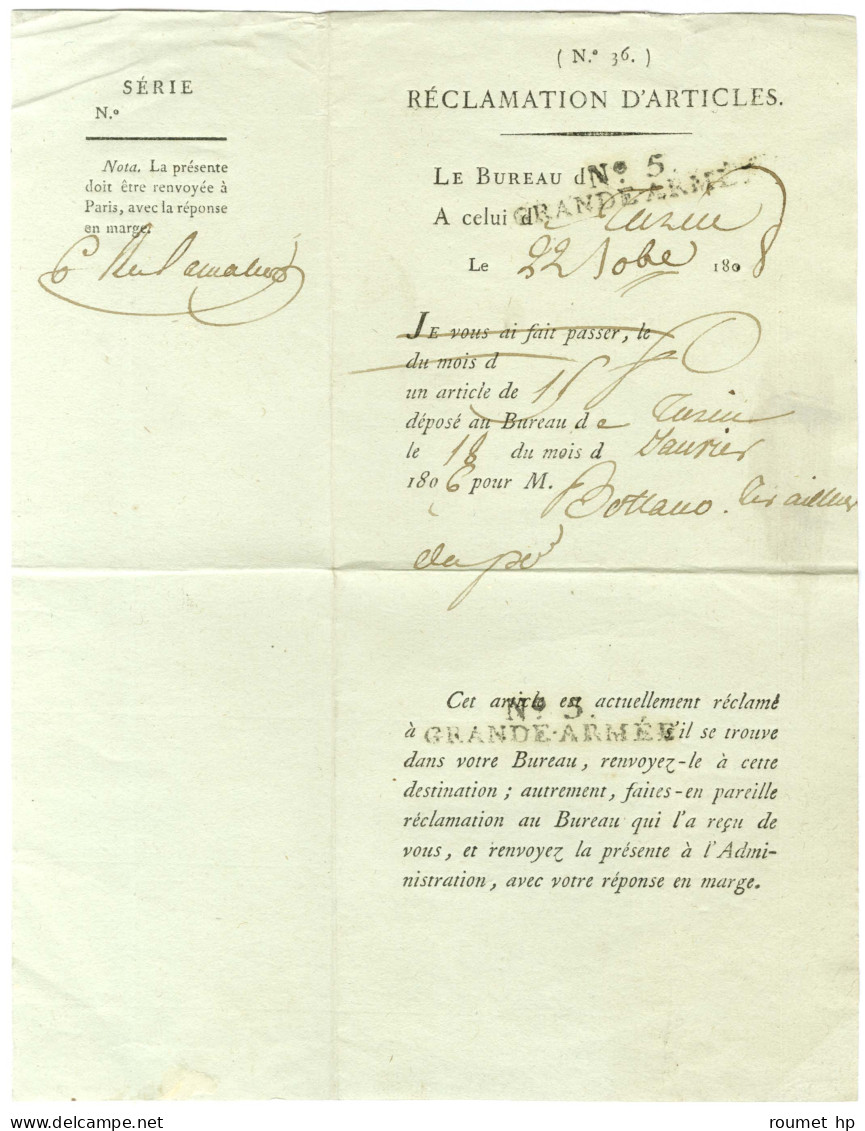 SÉRIE
N.º
Nota. La présente
doit être renvoyée à
Paris, avec la réponse
en marge.
( N.º 36. )
RÉCLAMATION D'ARTICLES.
LE BUREAU d
Nº 5.
GRANDE-ARMÉE
A celui de Turin
Le 22 8obre 1808
JE vous ai fait passer, le
du mois d
un article de 15
déposé au Bureau de Turin
le 18 du mois d Janvier
1806 pour M. Bottano. tirailleur
du po
Cet article est actuellement réclamé
Nº 5.
à GRANDE-ARMÉE s'il se trouve
dans votre Bureau, renvoyez-le à cette
destination ; autrement, faites-en pareille
réclamation au Bureau qui l'a reçu de
vous, et renvoyez la présente à l'Admi-
nistration, avec votre réponse en marge.
roumet hp